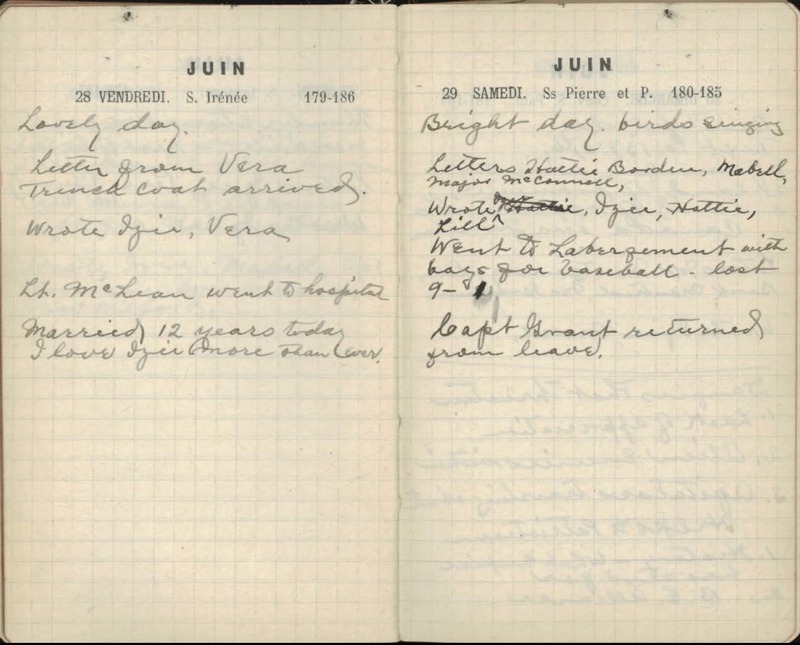 JUIN
28 VENDREDI. S. Irénée 179-186
Lovely day.
Letter from Vera
Trench coat arrived.
Wrote Izie, Vera
Lt. McLean went to hospital
Married 12 years today
I love Izie more than ever.
JUIN
29 SAMEDI. Ss Pierre et P. 180-185
Bright day. birds singing
Letters Hattie Borden, Mabell,
Major McConnell,
Wrote Hattie, Izie, Hattie,
Lill
Went to Labergement with
boys for baseball - lost
9-
Capt Grant returned
from leave.